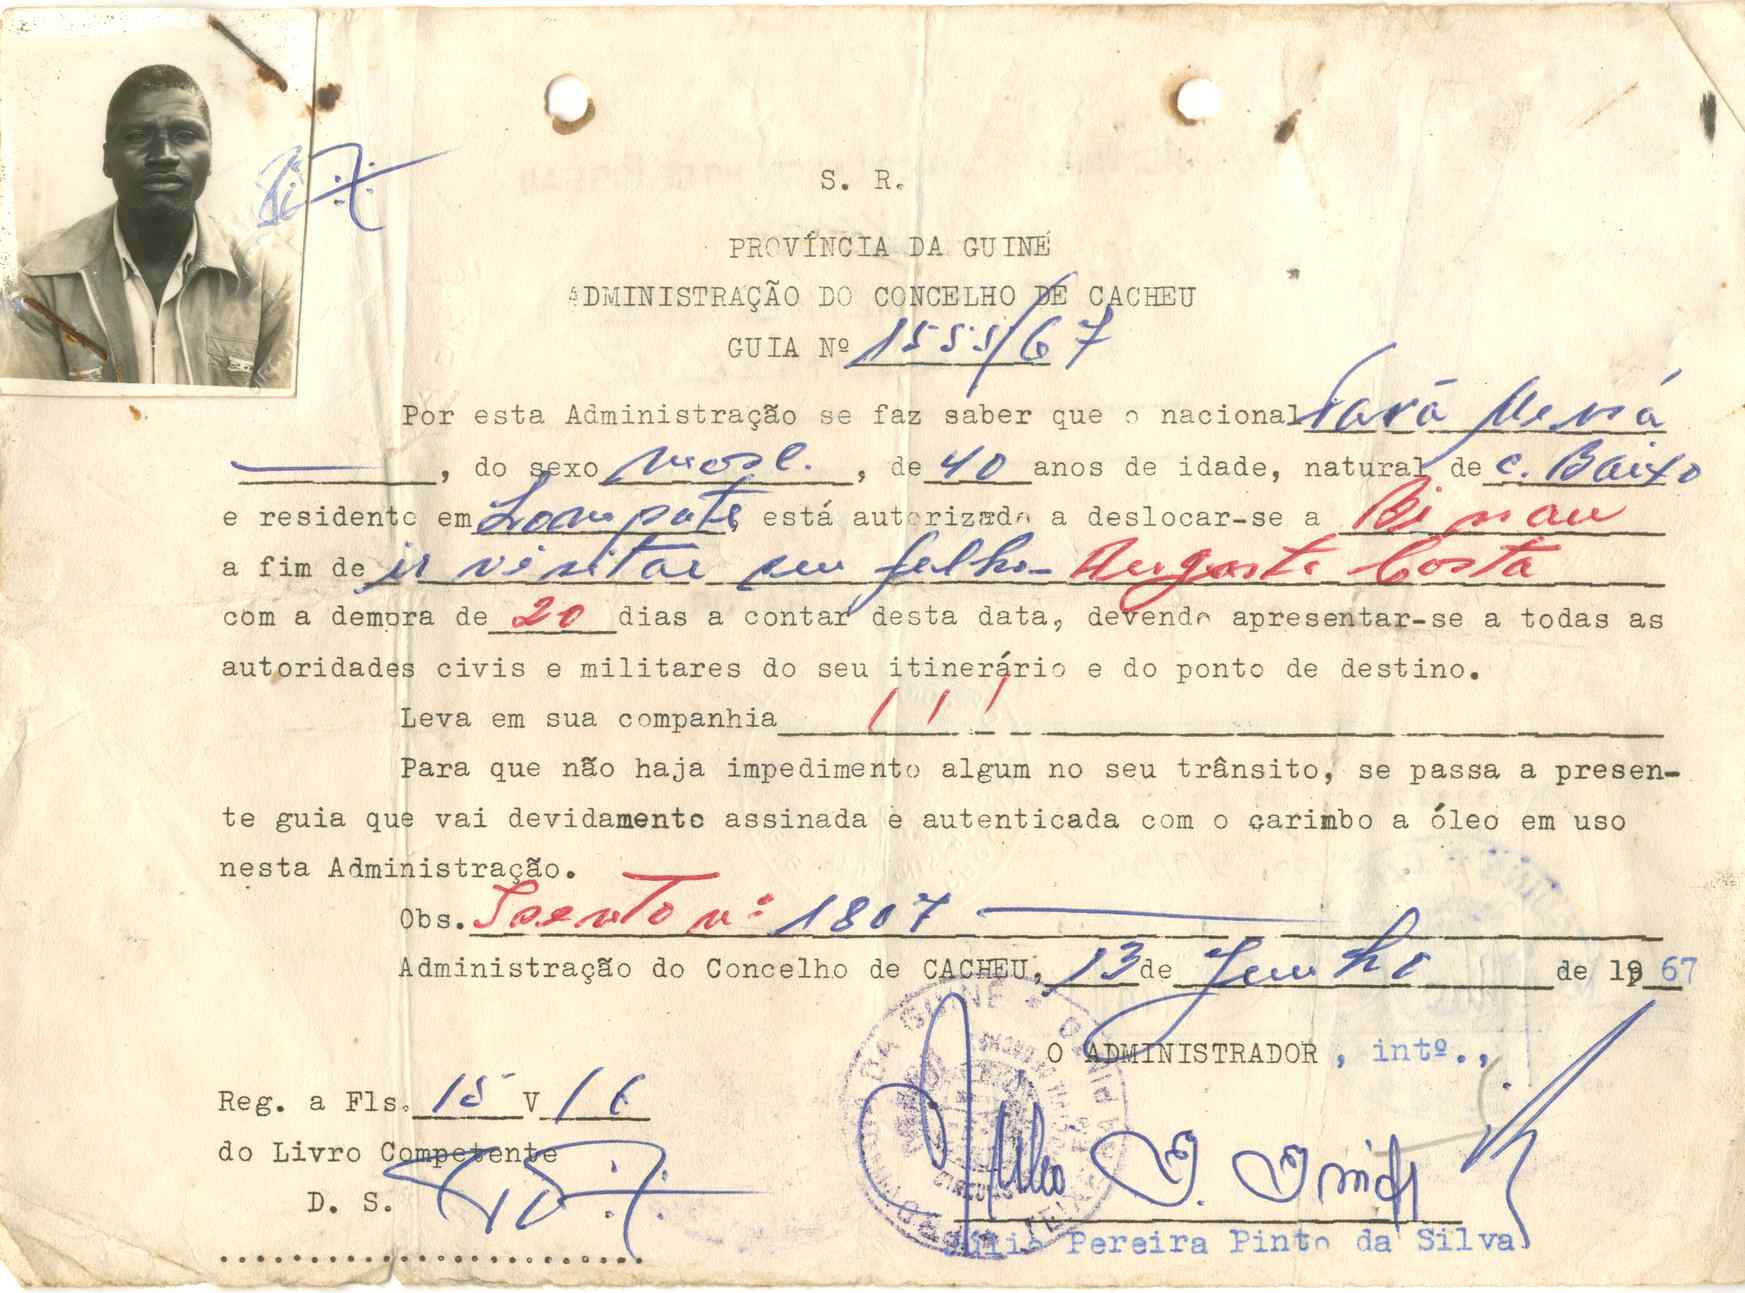 S. R.
PROVÍNCIA DA GUINÉ
ADMINISTRAÇÃO DO CONCELHO DE CACHEU
GUIA Nº 1555/67
Por esta Administração se faz saber que o nacional
, do sexo masc. , de 40 anos de idade, natural de C. Baixo
e residente em , está autorizado a deslocar-se a Bissau
a fim de ir visitar seu filho Augusto Costa
com a demora de 20 dias a contar desta data, devendo apresentar-se a todas as
autoridades civis e militares do seu itinerário e do ponto de destino.
Leva em sua companhia / / /
Para que não haja impedimento algum no seu trânsito, se passa a presen-
te guia que vai devidamente assinada e autenticada com o carimbo a óleo em uso
nesta Administração.
Obs. Isento nº 1807
Administração do Concelho de CACHEU, 13 de Junho de 1967
O ADMINISTRADOR , intº.,
Reg. a Fls. 15 V 16
do Livro Competente
D. S.
Júlio Pereira Pinto da Silva